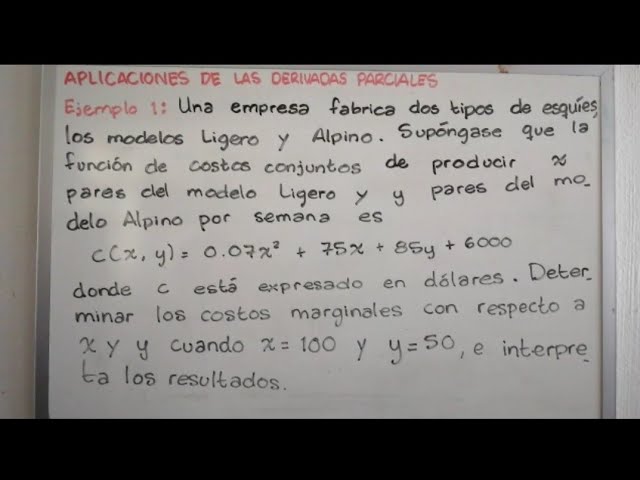 APLICACIONES DE LAS DERIVADAS PARCIALES
Ejemplo 1: Una empresa fabrica dos tipos de esquíes,
los modelos Ligero y Alpino. Supóngase que la
función de costos conjuntos de producir x
pares del modelo Ligero y y pares del mo-
delo Alpino por semana es
c(x, y) = 0.07x² + 75x + 85y + 6000
donde c está expresado en dólares. Deter-
minar los costos marginales con respecto a
x y y cuando x = 100 y y = 50, e interpre-
ta los resultados.